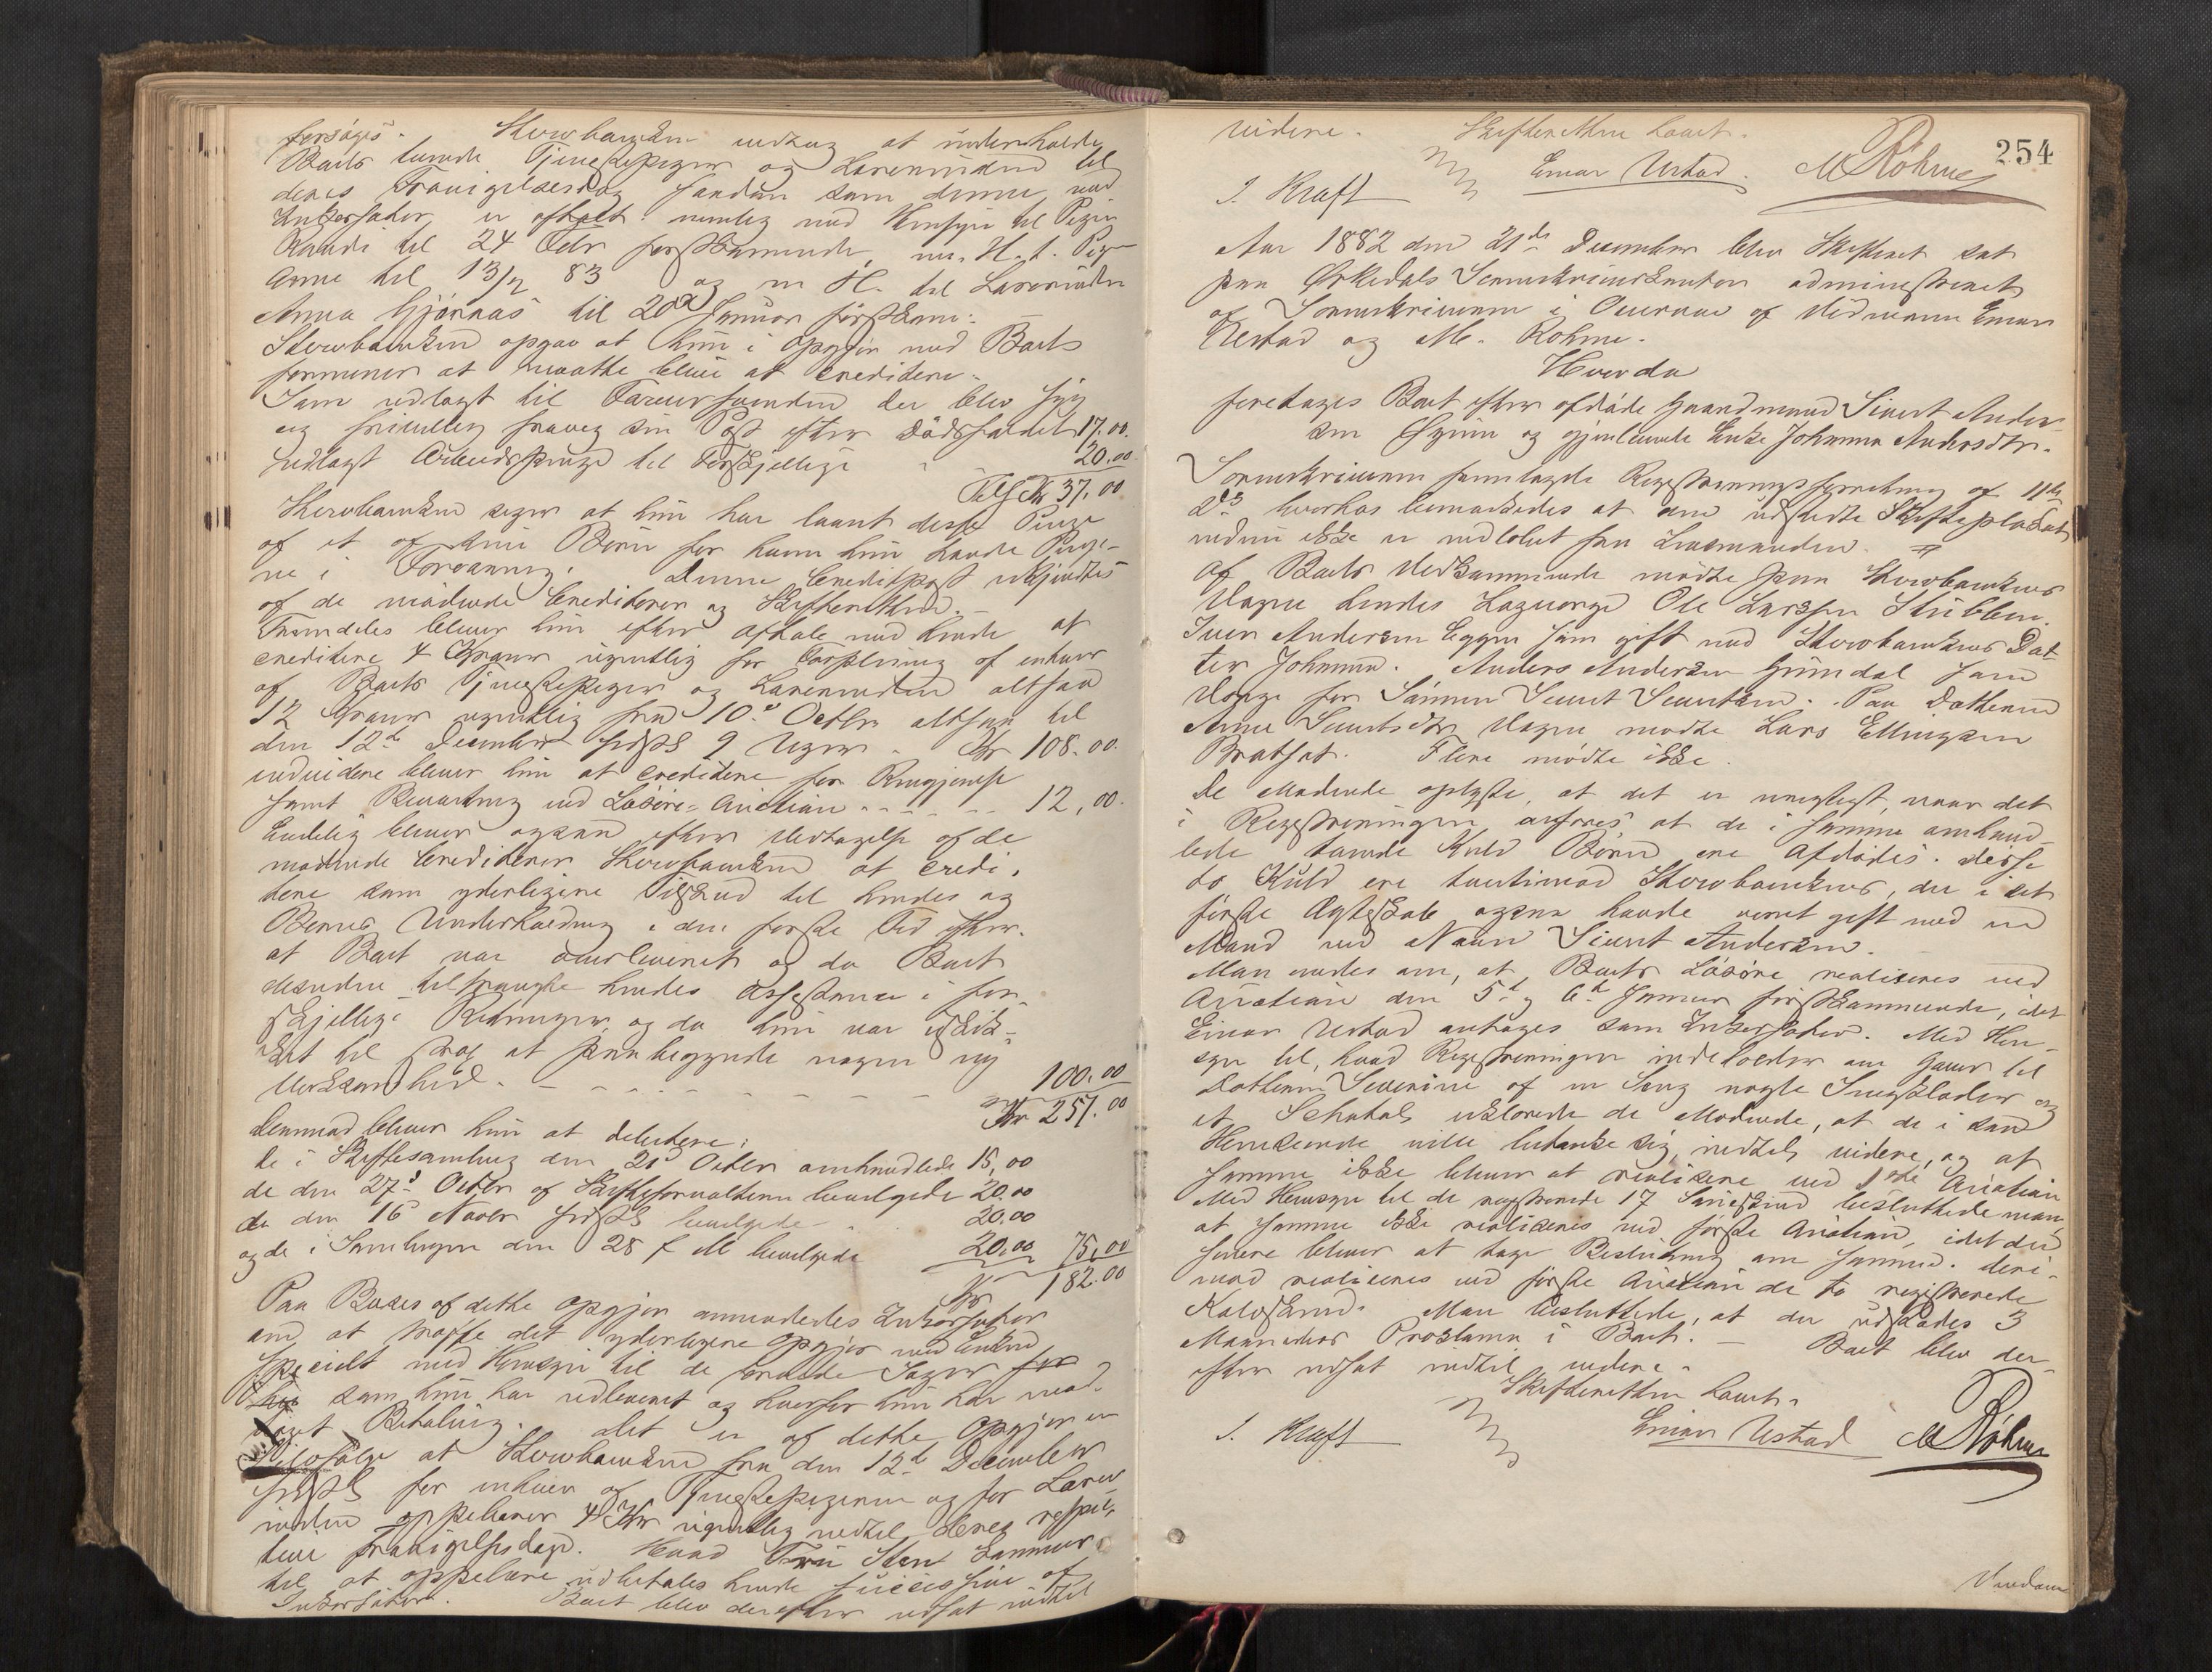 forsøges. Skovbanken vedtog at underholde
Boets tvende Tjenestepiger og Læreninden til
deres Fravigelsesdag saadan som denne med
Inkassator er aftalt nemlig med Hensyn til Pigen
Randi til 24 Febr førstkommende, m. H. t. Pigen
Anne til 13/4 83 og m H. til Lærerinden
Anna Gjønnæs til 20de Januar førstkom:
Skovbanken opgav at hun i Opgjør med Boets
formener at maatte blive at creditere.
Som udlagt til
sin Post efter Dødsfaldet 17.00.
Udlagt Arbeidspenge til Forskjellige " " 20.00.
Tils Kr 37.00
Skovbanken siger at hun har laant disse Penge
af et af sine Børn før hun havde Penge-
ne i Forvaring. Denne Creditpost udkjendtes
af de mødende Creditorer og Skifteretten.
Fremdeles bliver hun efter Aftale med hende at
creditere 4 Kroner ugentlig for Bespisning af enhver
af Boets Tjenestepiger og Lærerinden altsaa
12 Kroner ugentlig fra 10de Octbr altsaa til
den 12te December sidstl 9 Uger " Kr 108.00.
endvidere bliver hun at creditere for Rengjørelse
samt Bevertning ved Løsøre-Auction - - - 12,00.
Endelig bliver ogsaa efter Vedtagelse af de
mødende Creditorer Skovbanken at credi-
tere som yderligere Tilskud til hendes og
Børnes Underholdning i den første Tid efter
at Boet var overleveret og da Boet
desuden tiltrængte hendes Assistance i for-
skjellige Retninger, og da hun var uskik-
ket til strax at paabegynde nogen ny
Virksomhed. - - - - - - 100.00
Kr 257.00
Derimod bliver hun at debitere:
de i Skiftesamling den 21d Octbr omhandlede 15,00
de den 27d Octbr af Skifteforvalteren bevilgede 20.00
de den 16 Novbr sidstl bevilgede - . . 20.00
og de i Samlingen den 28 f M bevilgede 20,00 75,00
Kr 182.00
Paa Basis af dette Opgjør anmodedes Inkassator
om at træffe det yderligere Opgjør med Enken
specielt med Hensyn til de Sager for
som hun har udleveret og hvorfor hun har mod-
taget Betaling. Det er af dette Opgjør en
Selvfølge at Skovbanken fra den 12te December
sidstl for enhver af Tjenestepigerne og for Lærer-
inden oppebærer 4 Kr ugentlig indtil deres respec-
tive Fravigelsesdage. Hvad Fru Sten kommer
til at oppebære udbetales hende successive af
Inkassator. Boet blev derefter udsat indtil
videre. Skifteretten hævet.
I. Kraft Einar Ustad. M Røhme
254
Aar 1882 den 21de December blev Skifteret sat
paa Orkedals Sorenskriverkontor administreret
af Sorenskriveren i Overvær af Vidnerne Einar
Ustad og M. Røhme.
Hvorda
foretages Boet efter afdøde Gaardmand Sivert Ander-
sen og gjenlevende Enke Johanna Andersdtr.
Sorenskriveren fremlagde Registreringsforretning af 11te
ds hvorhos bemærkedes at den udstedte Skifteplakat
endnu ikke er indløbet fra Lensmanden.
Af Boets Vedkommende mødte paa Skovbankens
Vegne hendes Laugverge Ole Larssen Stubben.
Iver Andersen Eggen som gift med Skovbankens Dat-
ter Johanna. Anders Andersen Grindal som
Verge for Sønnen Sivert Sivertsen. Paa Datteren
Anne Sivertsdtr Vegne mødte Lars Ellingsen
Bratset. Flere mødte ikke.
De Mødende oplyste, at det er urigtigt, naar det
i Registreringen anføres at de i samme omhand-
lede tvende Kuld Børn ere Afdødes. Disse
to Kuld ere tvertimod Skovbankens, der i det
første Ægteskab ogsaa havde været gift med en
Mand ved Navn Sivert Andersen.
Man enedes om, at Boets Løsøre realiseres ved
Auction den 5te og 6te Januar førstkommende, idet
Einar Ustad antages som Inkassator. Med Hen-
syn til, hvad Registreringen indeholder om Gaver til
Datteren Severine af en Seng nogle Sengklæder og
et Schatol erklærede de Mødende, at de i saa
Henseende ville betænke sig, indtil videre, og at
samme ikke bliver at realisere ved 1ste Auction
Med Hensyn til de registrerede 17 Saueskind besluttede man,
at samme ikke realiseres ved første Auction, idet der
senere bliver at tage Beslutning om samme. Deri-
mod realiseres ved første Auction de to registrerede
Kalveskind. Man besluttede, at der udstedes 3
Maaneders Proklama i Boet. - Boet blev der-
efter udsat indtil videre.
Skifteretten hævet.
I. Kraft Einar Ustad M Røhme